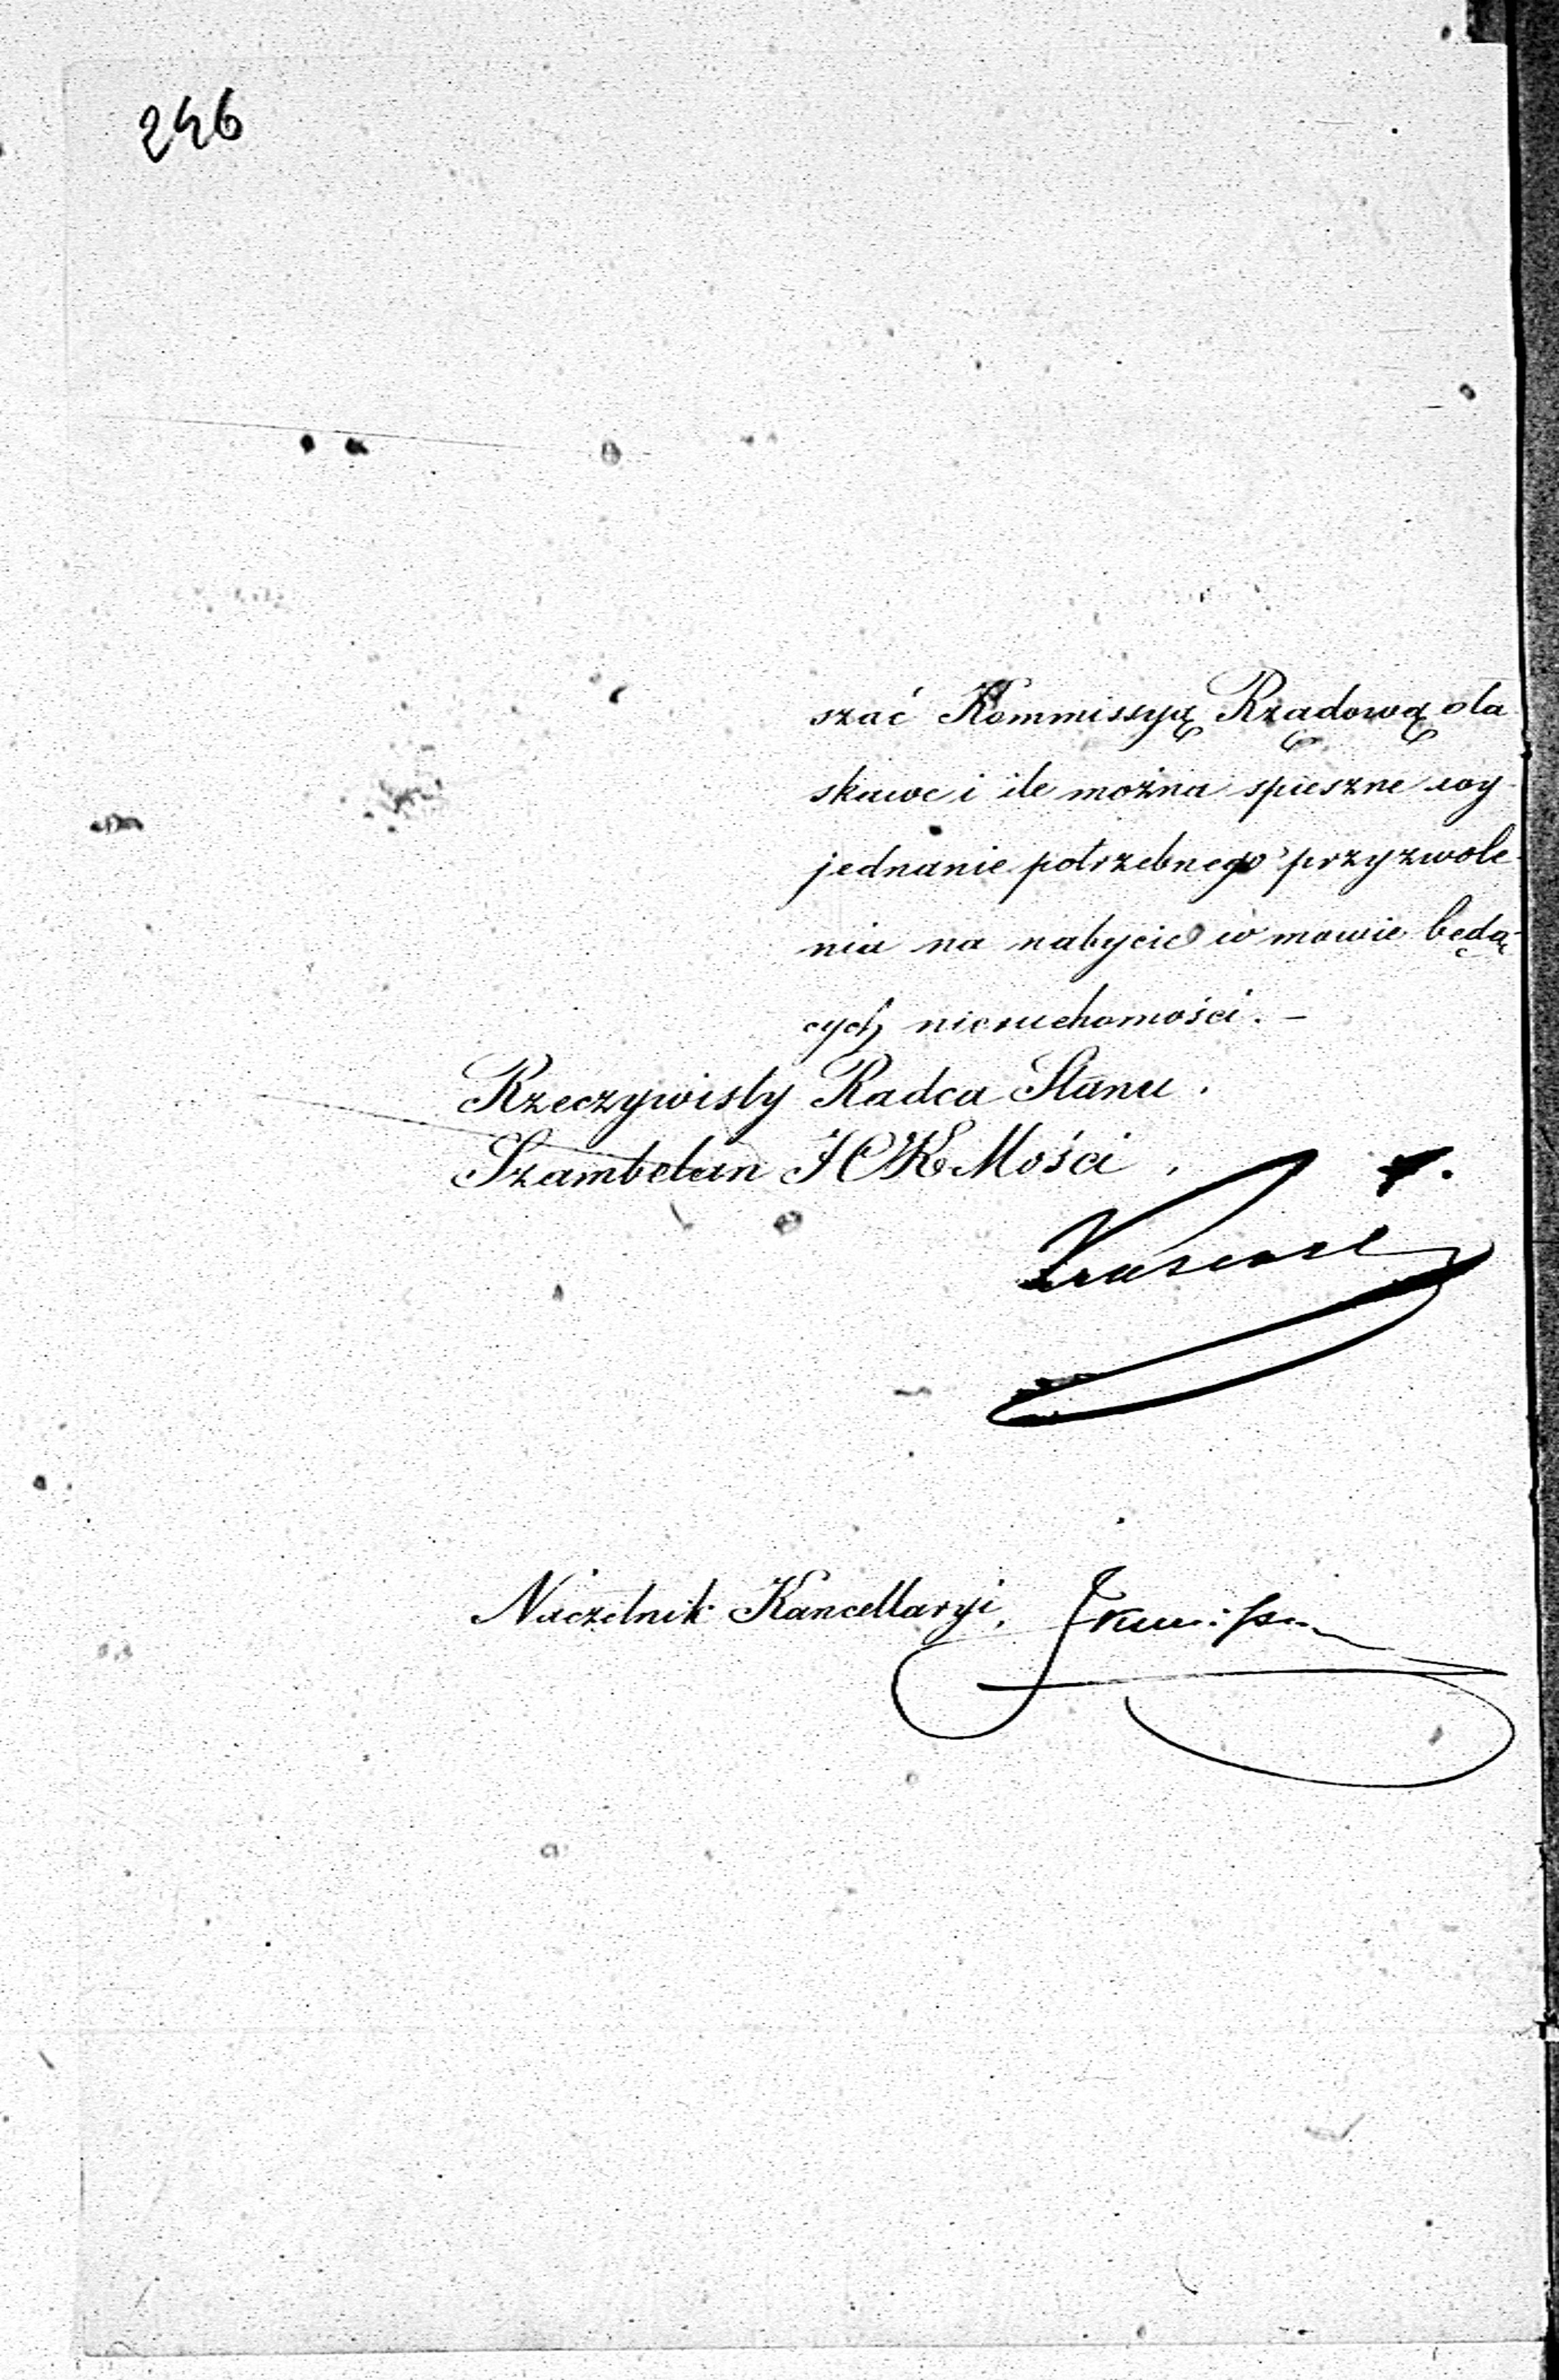 246
szać Kommissyą Rządową o ła
skawe i ile można spieszne wy
jednanie potrzebnego przyzwole-
nia na nabycie w mowie będą-
cych nieruchomości. –
Rzeczywisty Radca Stanu.
Szambelan JCKMości,
Naczelnik Kancellaryi,